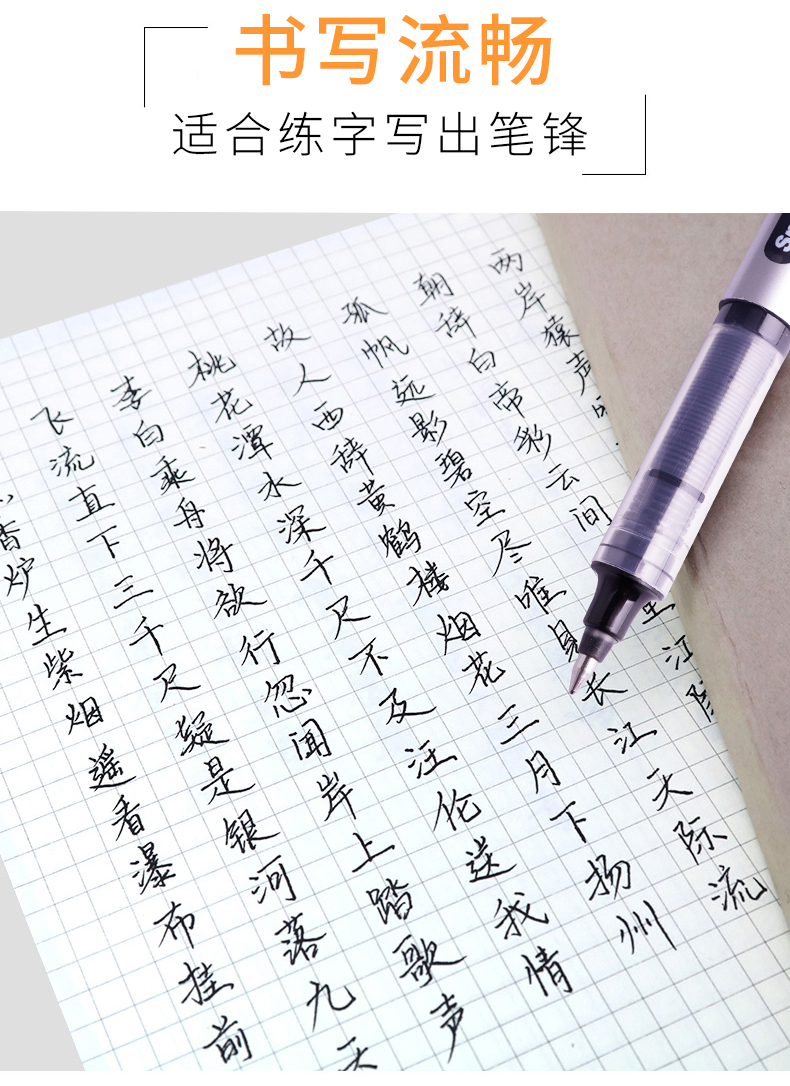 书写流畅
适合练字写出笔锋
香炉生紫烟遥看瀑布挂前
飞流直下三千尺疑是银河落九天
李白乘舟将欲行忽闻岸上踏歌声
桃花潭水深千尺不及汪伦送我情
故人西辞黄鹤楼烟花三月下扬州
孤帆远影碧空尽唯見长江天际流
朝辞白帝彩云间
江
两岸猿声